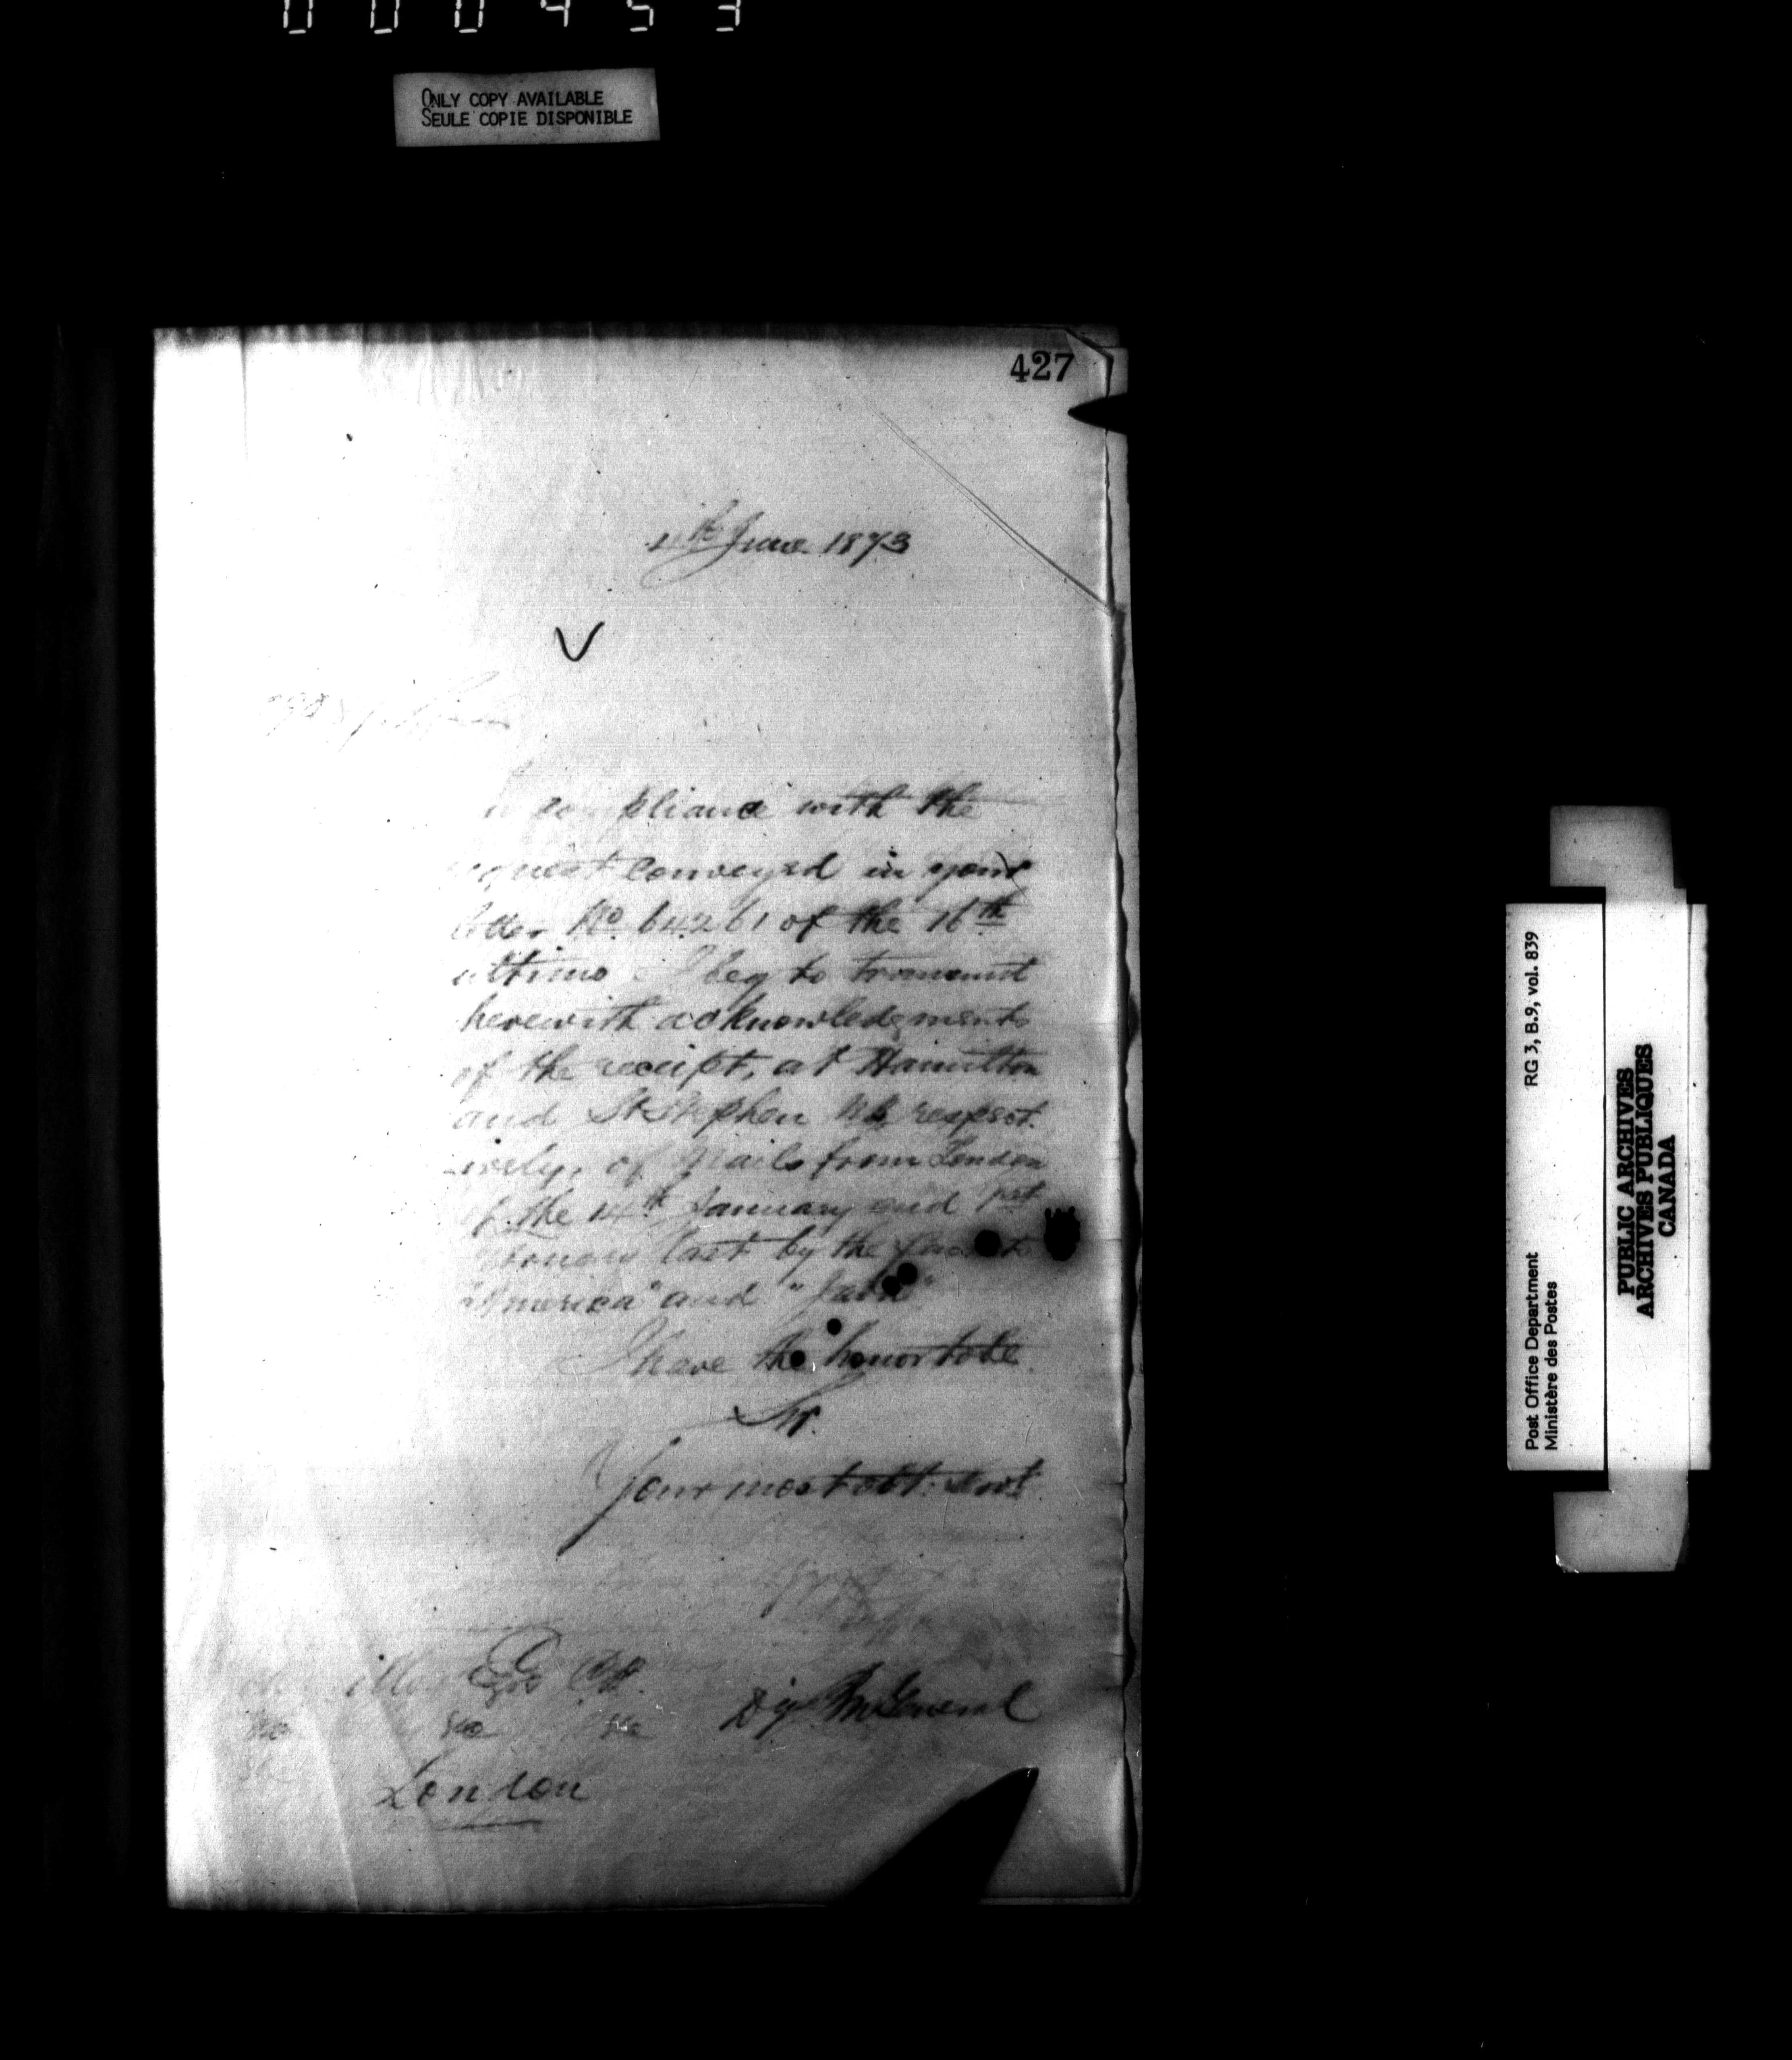 000453
ONLY COPY AVAILABLE
SEULE COPIE DISPONIBLE
427
June 1873
compliance with the
request conveyed in your
letter No. 64261 of the 16th
ultimo I beg to transmit
herewith acknowledgments
of the receipt, at Hamilton
and St Stephen NB, respect
-ively, of Mails from London
of the 14th January and 1st
last by the
"America" and
I have the honor to be
Sir.
Your most obt. servt
Esqr CB.
&c &c &c
Dy P M General
London
RG 3, B.9, vol. 839
Post Office Department
Ministère des Postes
PUBLIC ARCHIVES
ARCHIVES PUBLIQUES
CANADA